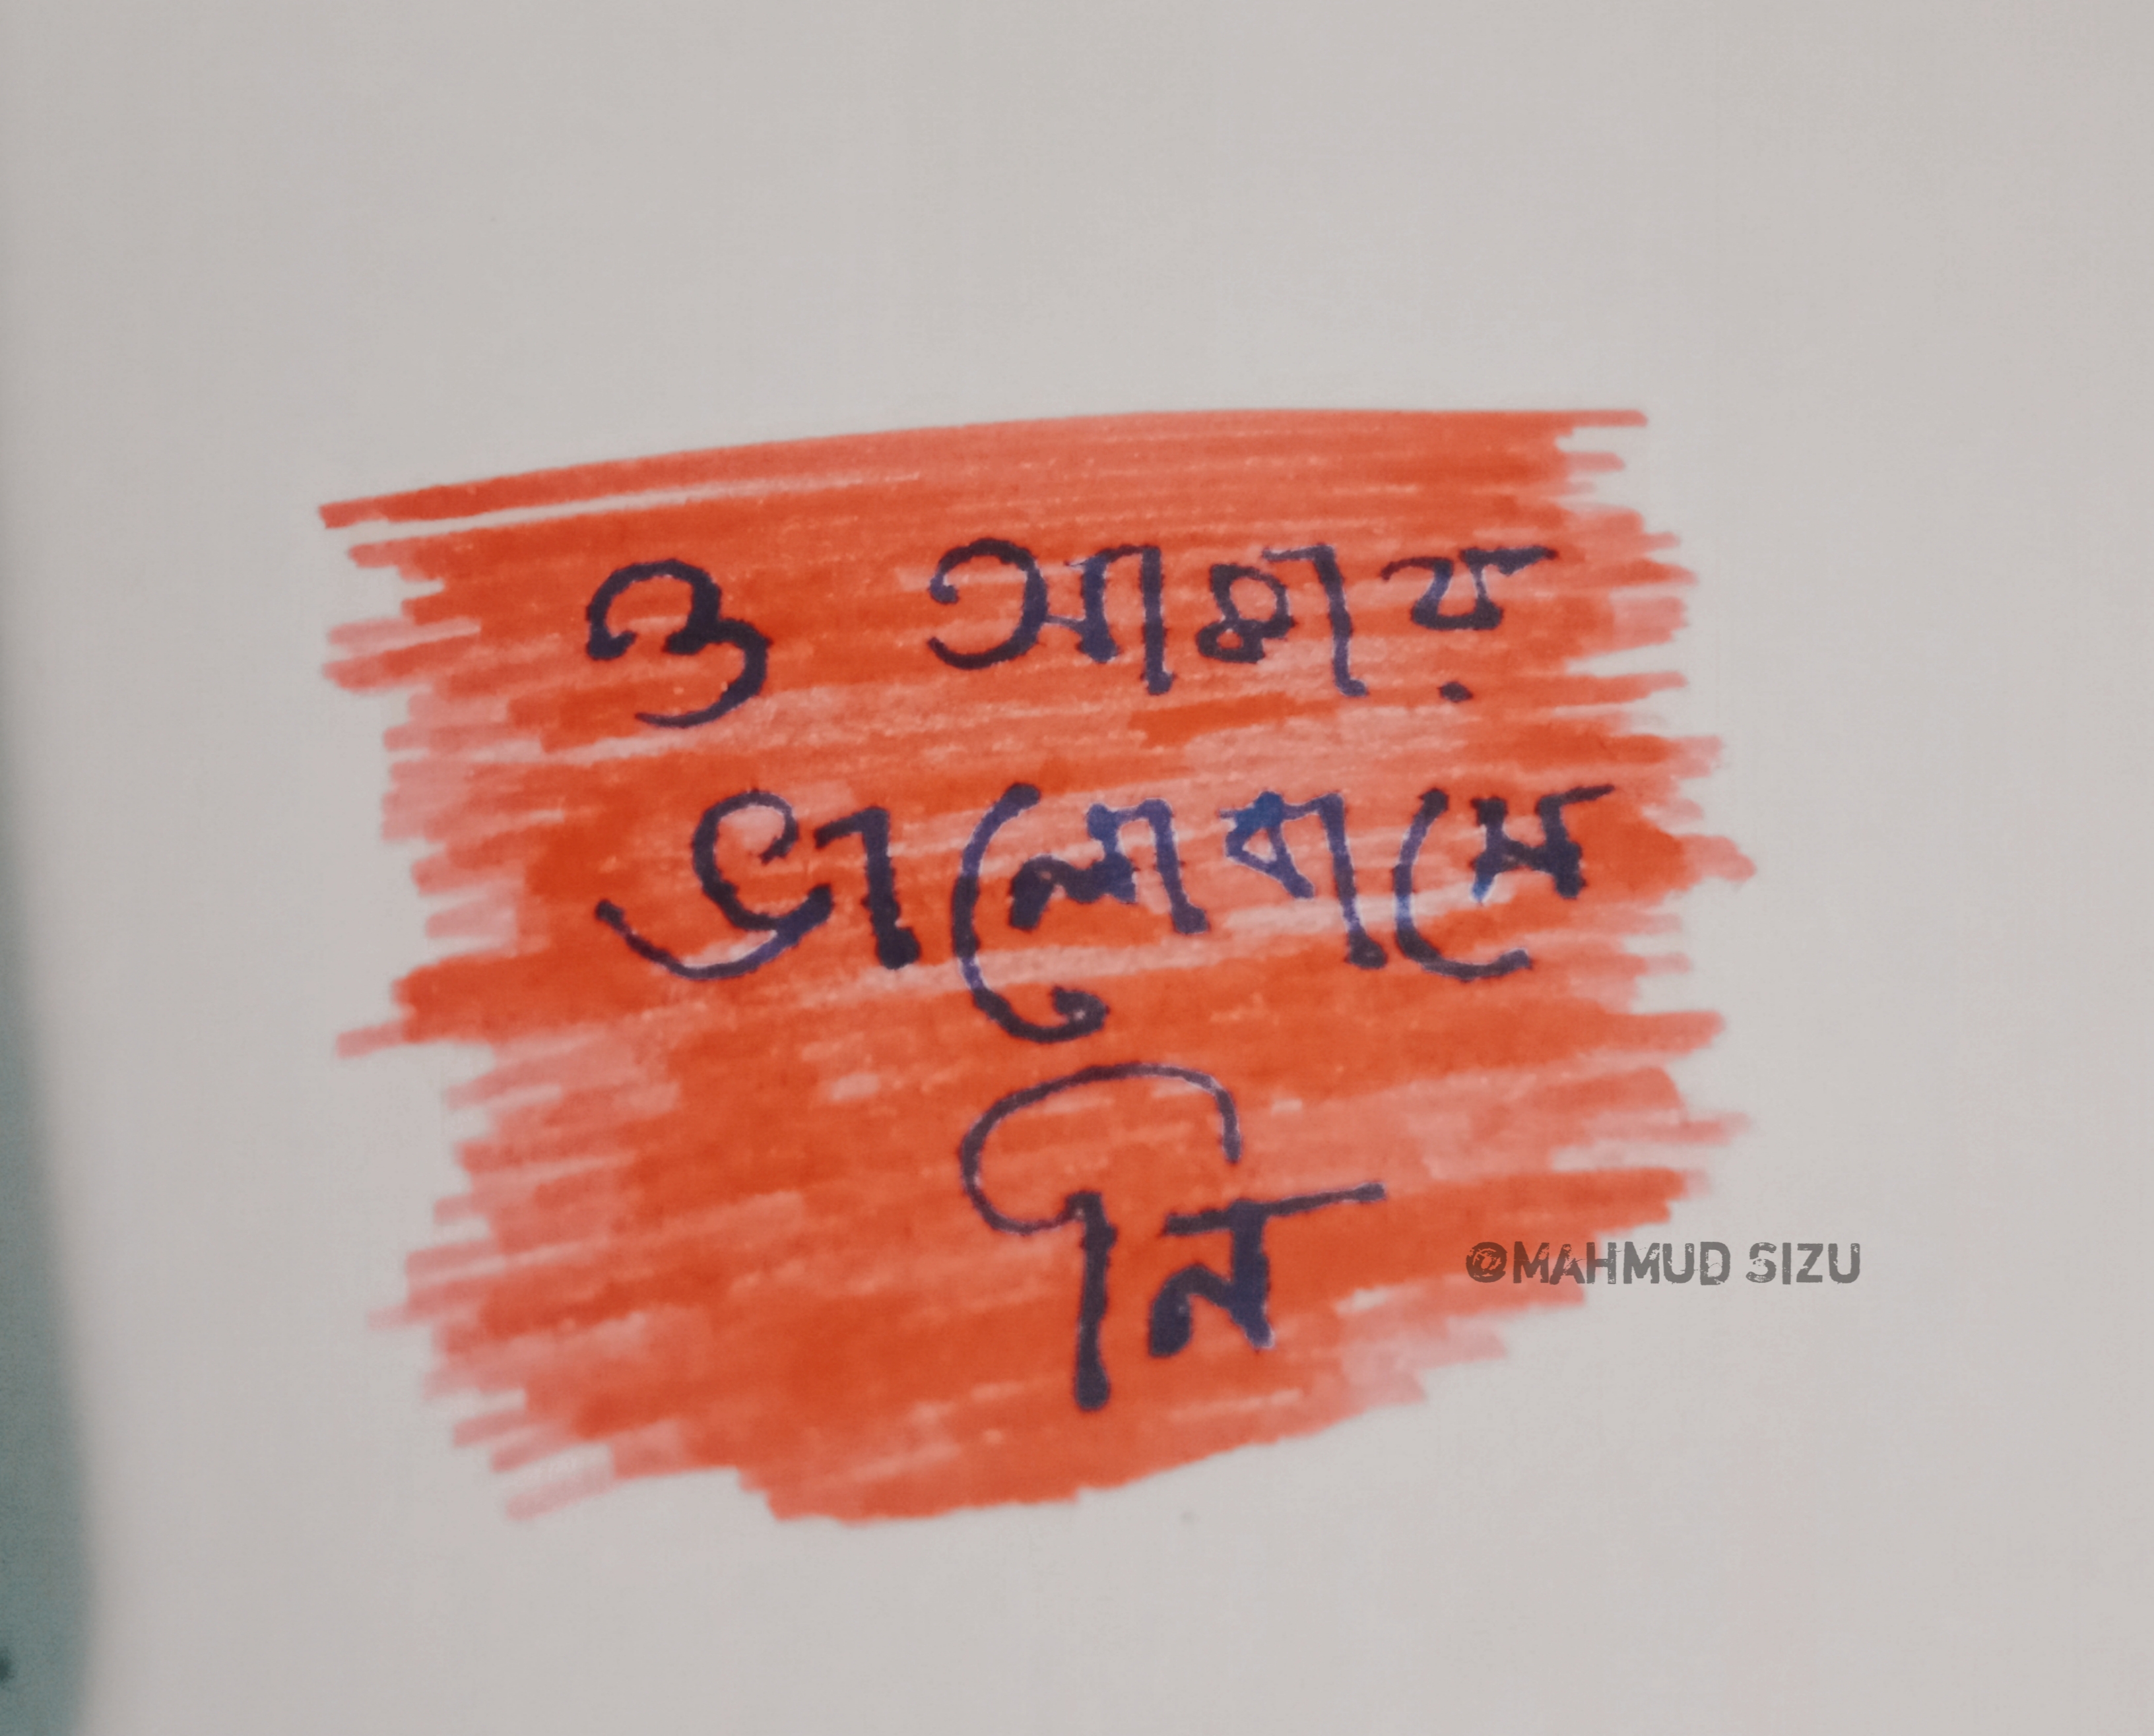 ও আমায়
ভালোবাসে
নি
@MAHMUD SIZU